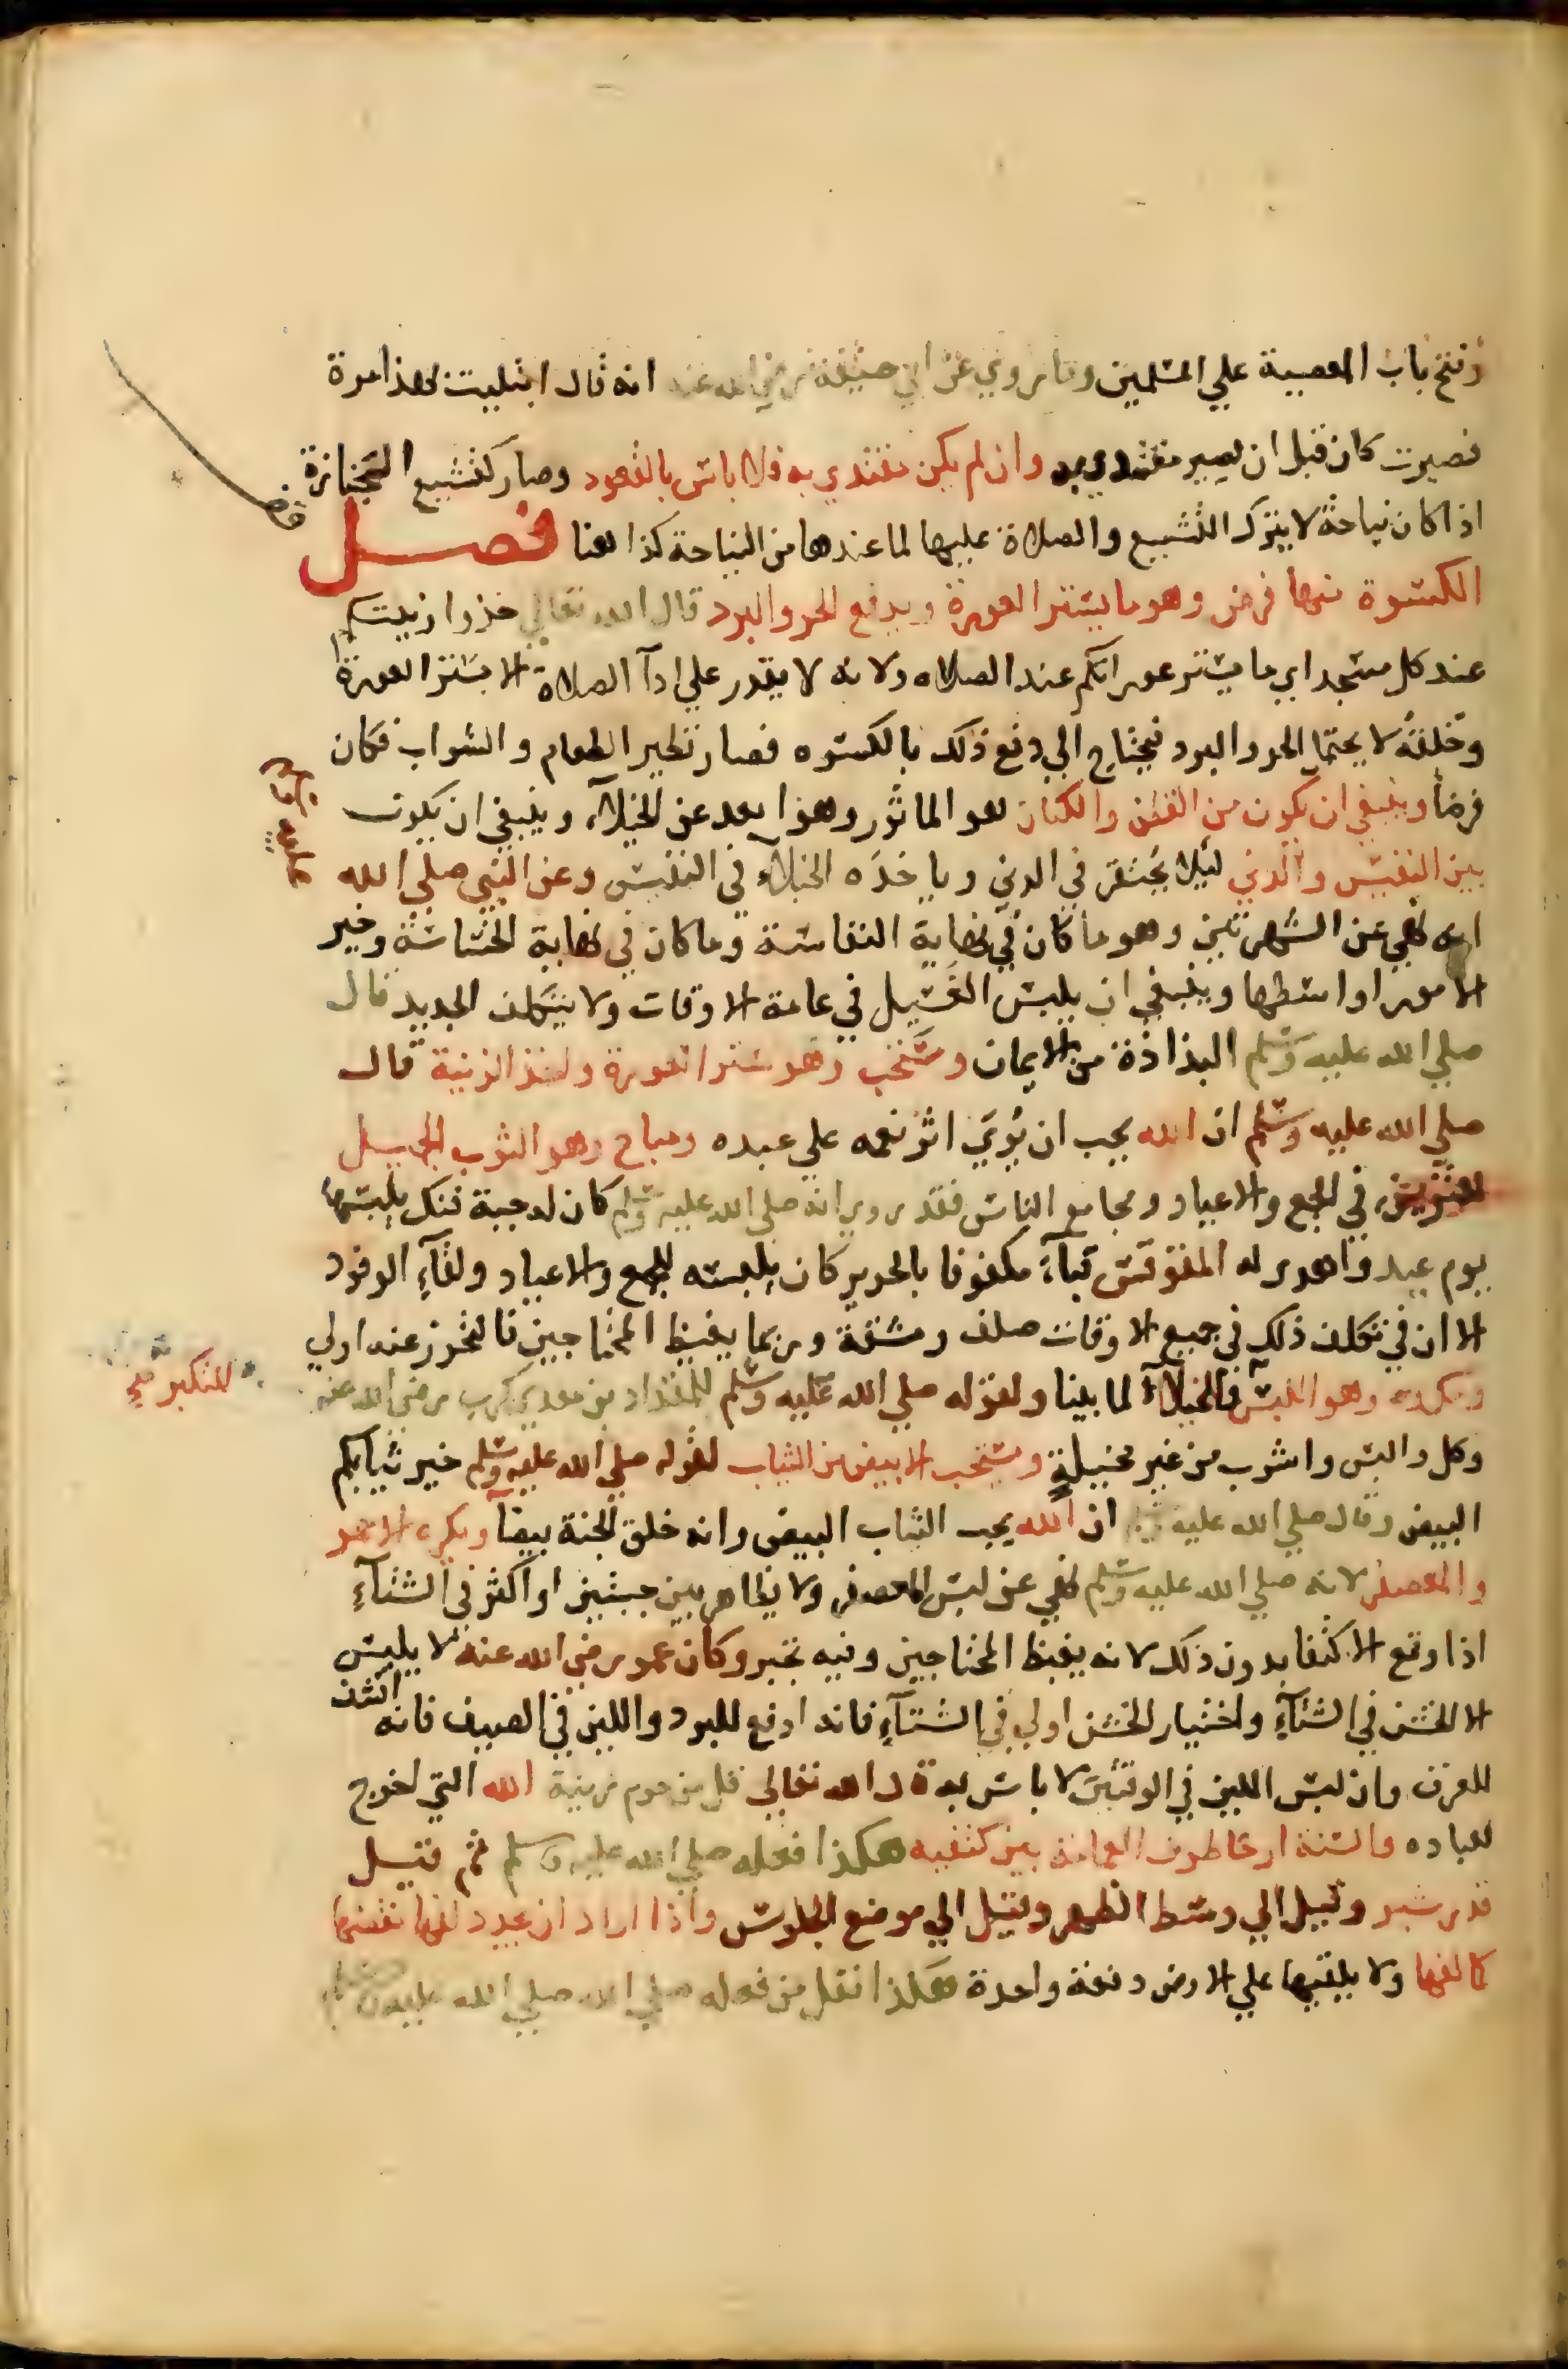 وفتح باب المعصية علي المسلمين وما روي عن ابي حنيفة رضي الله عنه انه قال ابتليت بهذا مرة
فصبرت كان قبل ان يصير مقتدي به وان لم يكن مقتدي به فلا باس بالقعود وصار كتشييع الجنازة
اذا كان نياحة لا يترك التشييع والصلاة عليها لما عندها من النياحة كذا هنا فصل
الكسوة منها فرض وهو ما يستر العورة ويدفع الحر والبرد قال الله تعالي خذوا زينتكم
عند كل مسجد اي ما يستر عوراتكم عند الصلاه ولانه لا يقدر علي ادآ الصلاة الا بستر العورة
وخلقته لا يحتمل الحر والبرد فيحتاج الي دفع ذلك بالكسوه فصار نظير الطعام والشراب فكان
فرضا وينبغي ان يكون من القطن والكتان هو الماثور وهو ابعد عن الخيلآء وينبغي ان يكون
بين النفيس والدني ليلا يحتقر في الدني وياخذه الخيلآء في النفيس وعن النبي صلي الله
انه نهي عن الشهرتين وهو ما كان في نهاية النفاسة وما كان في نهاية الخساسة وخير
الامور اواسطها وينبغي ان يلبس الغسيل في عامة الاوقات ولا يتكلف الجديد قال
صلي الله عليه وسلم البذاذة من الايمان ومستحب وهو ستر العورة واخذ الزينة قال
صلي الله عليه وسلم ان الله يحب ان يري اثر نعمه علي عبده ومباح وهو الثوب الجميل
للتزين في الجمع والاعياد ومجامع الناس فقد روي انه صلي الله عليه وسلم كان له جبة فنك يلبسها
يوم عيد واهدي له المقوقس قبآء مكفوفا بالحرير كان يلبسه للجمع والاعياد ولقآء الوفود
الا ان في تكلف ذلك في جميع الاوقات صلف ومشقة وربما يغيظ المحتاجين فالتحرز عنه اولي
ومكروه وهو اللبس للخيلآء لما بينا ولقوله صلي الله عليه وسلم للمقداد بن معدي كرب رضي الله عنه
للتكبر صح
وكل والبس واشرب من غير مخيلة ويستحب الابيض من الثياب لقوله صلي الله عليه وسلم خير ثيابكم
البيض وقال صلي الله عليه وسلم ان الله يحب الثياب البيض وانه خلق الجنة بيضآ ويكره الاحمر
والمعصفر لانه صلي الله عليه وسلم نهي عن لبس المعصفر ولا يظاهر بين جبتين او اكثر في الشتآء
اذا وقع الاكتفا بدون ذلك لانه يغيظ المحتاجين وفيه تجبر وكان عمر رضي الله عنه لا يلبس
الا الخشن في الشتآء واختيار الخشن اولي في الشتآء فانه ادفع للبرد واللين في الصيف فانه انشف
للعرق وان لبس اللين في الوقتين لا باس به قال الله تعالي قل من حرم زينة الله التي اخرج
لعباده والسنة ارخا طرف العمامة بين كتفيه هكذا فعله صلي الله عليه وسلم ثم قيل
قدر شبر وقيل الي وسط الظهر وقيل الي موضع الجلوس واذا اراد ان يجدد لفها نقضها
كما لفها ولا يلقيها علي الارض دفعة واحدة هكذا نقل من فعله صلي الله عليه وسلم